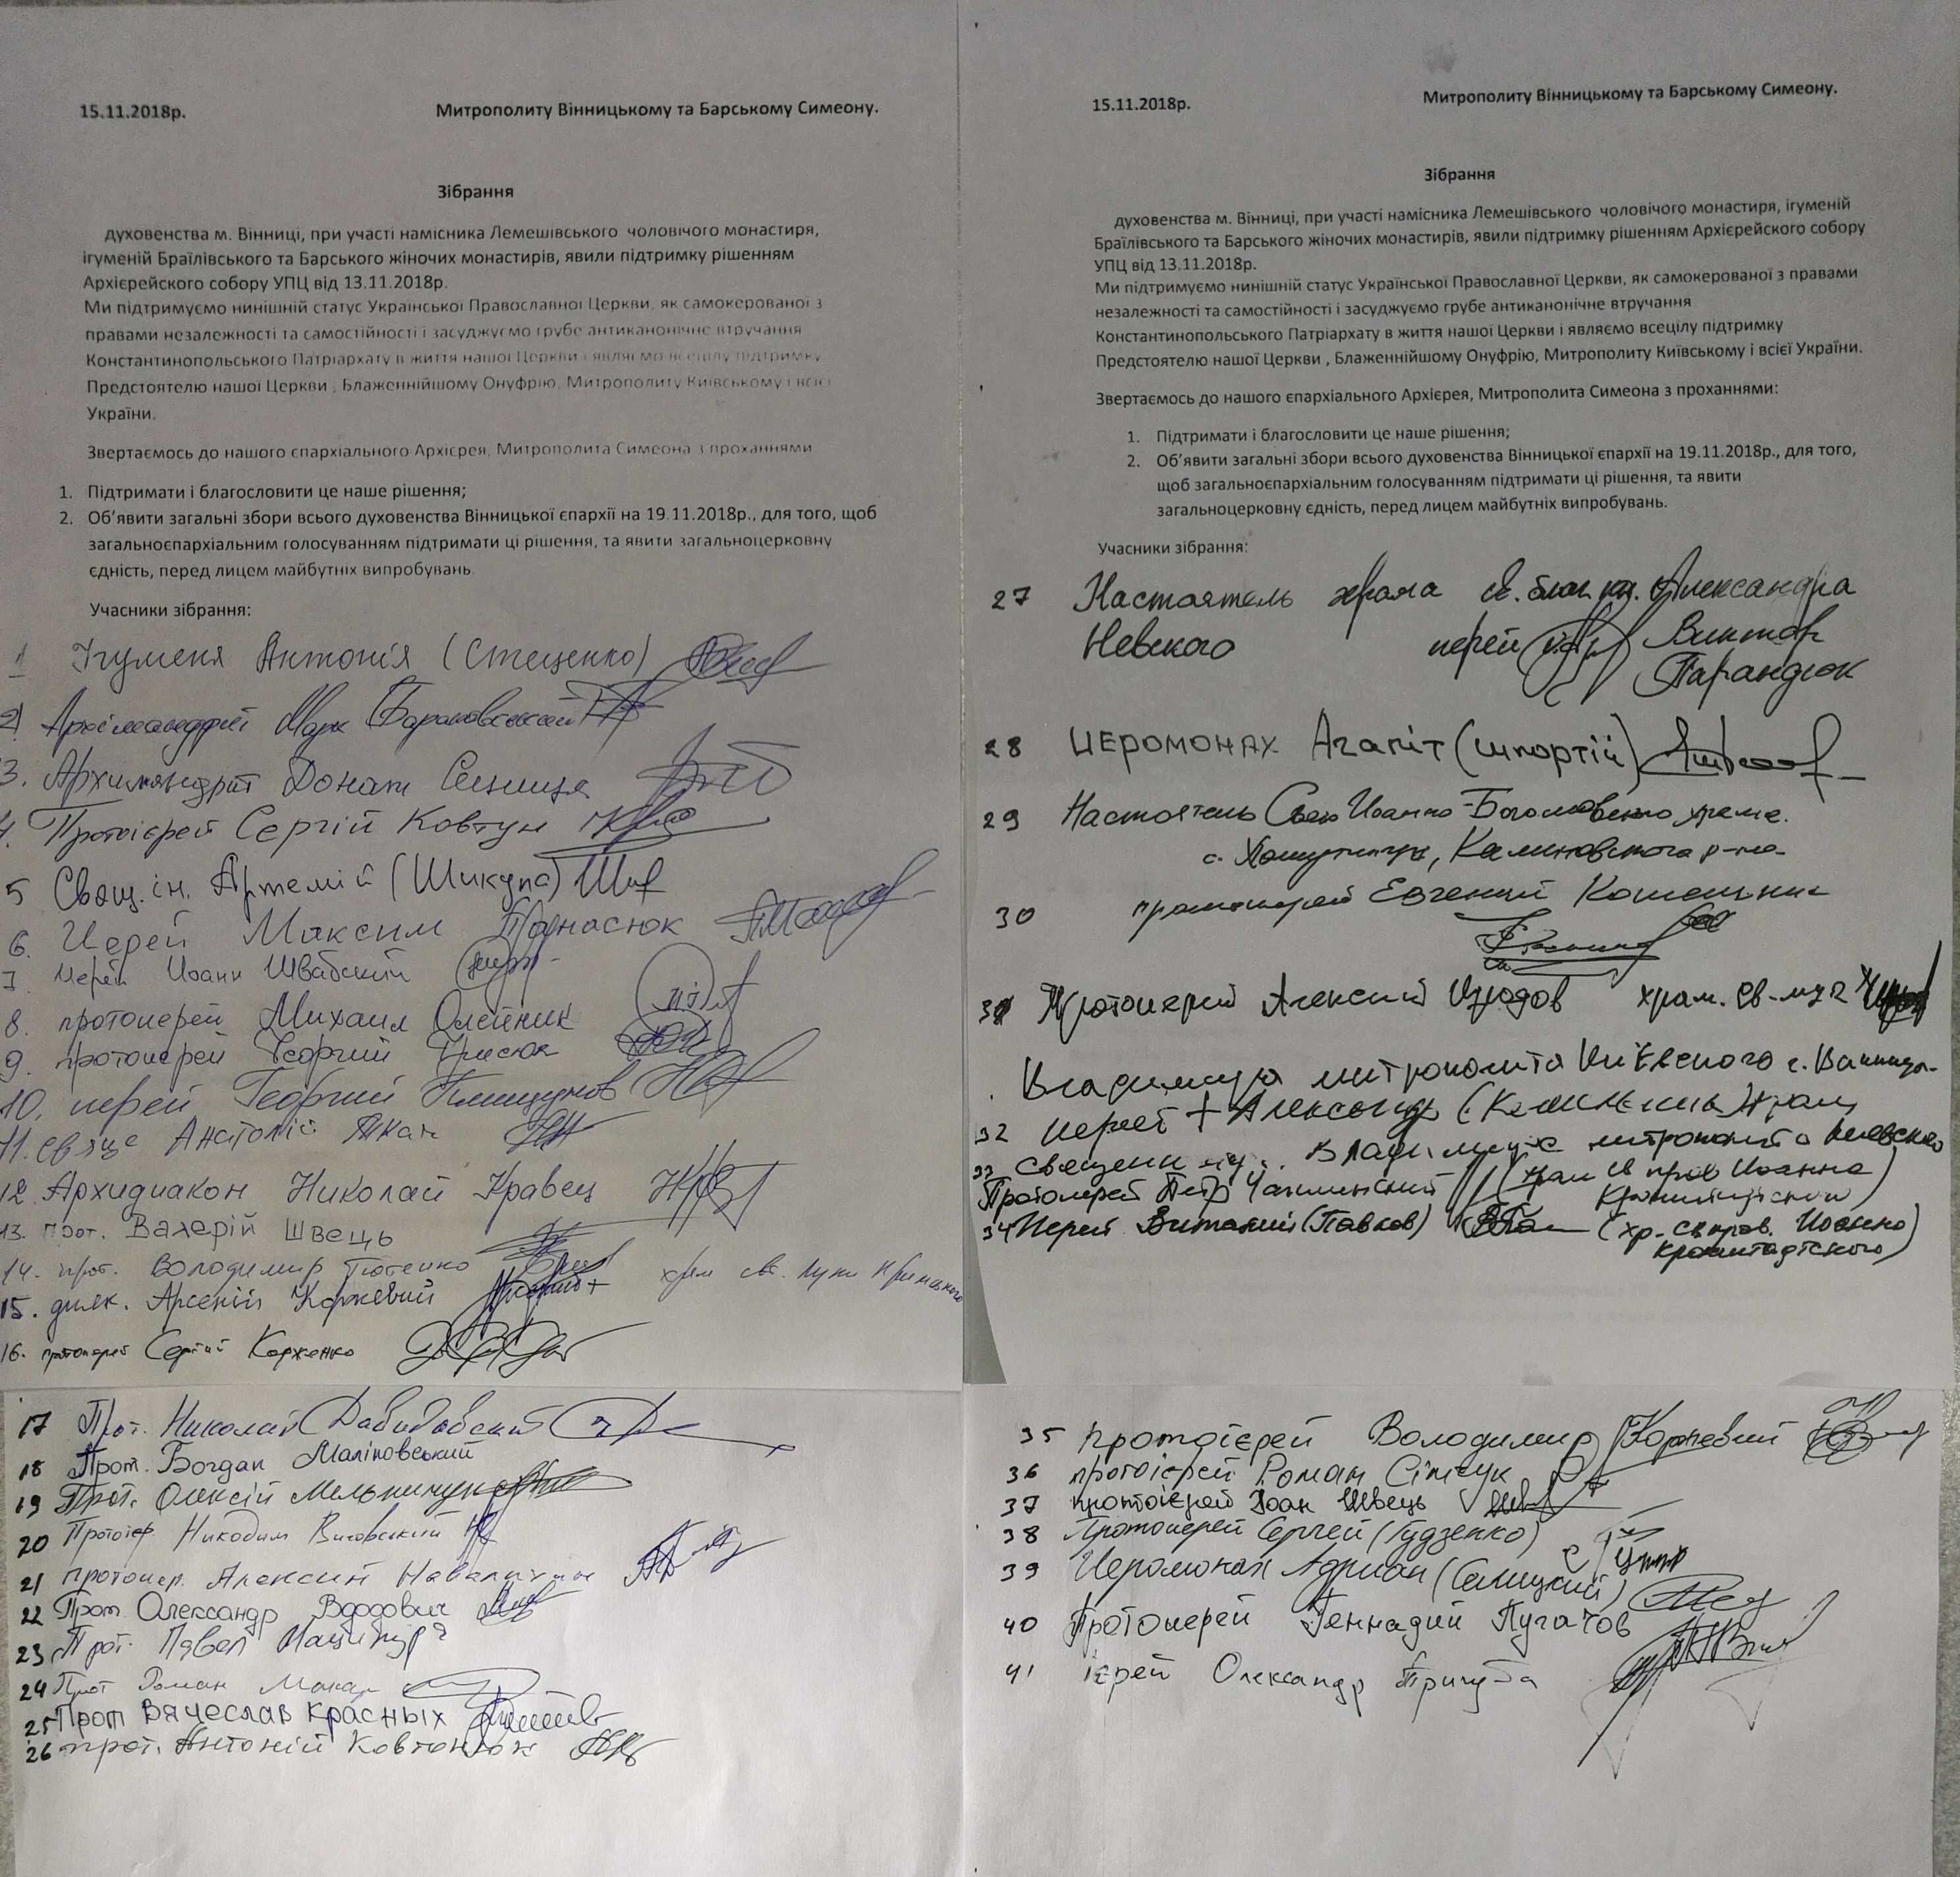 15.11.2018р.
Митрополиту Вінницькому та Барському Симеону.
Зібрання
духовенства м. Вінниці, при участі намісника Лемешівського чоловічого монастиря,
ігуменій Браїлівського та Барського жіночих монастирів, явили підтримку рішенням
Архієрейского собору УПЦ від 13.11.2018р.
Ми підтримуємо нинішній статус Української Православної Церкви, як самокерованої з
правами незалежності та самостійності і засуджуємо грубе антиканонічне втручання
Константинопольського Патріархату в життя нашої Церкви і являємо всецілу підтримку
Предстоятелю нашої Церкви , Блаженнійшому Онуфрію, Митрополиту Київському і всієї
України.
Звертаємось до нашого єпархіального Архієрея, Митрополита Симеона з проханнями
1. Підтримати і благословити це наше рішення;
2. Об’явити загальні збори всього духовенства Вінницької єпархії на 19.11.2018р., для того, щоб
загальноєпархіальним голосуванням підтримати ці рішення, та явити загальноцерковну
єдність, перед лицем майбутніх випробувань
Учасники зібрання:
1 Ігуменя Антонія (Стеценко)
2 Архімандрит Марк
3. Архимандрит Донат
4. Протоієрей Сергій Ковтун
5 Свящ. ін. Артемій (Шикула)
6. Иерей Максим Панасюк
7. Иерей Иоанн Швабский
8. протоиерей Михаил Олейник
9. протоиерей Георгий
10. иерей Георгий
11. Анатолій Ткач
12 Архидиакон Николай Кравец
13. прот. Валерій Швець
14. прот. Володимир
15. диак. Арсеній Коржевий храм св. Луки Кримського
16. протоиерей Сергий Корженко
17 Прот. Николай Давидовский
18 Прот. Богдан Маліновський
19 Прот. Олексій Мельничук
20 Протоієр. Никодим
21 протоиер. Алексий
22 Прот. Олександр Вдодович
23 Прот. Павел
24 Прот Роман Макар
25 Прот Вячеслав Красных
26 прот. Антоній Ковтонюк
15.11.2018р.
Митрополиту Вінницькому та Барському Симеону.
Зібрання
духовенства м. Вінниці, при участі намісника Лемешівського чоловічого монастиря, ігуменій
Браїлівського та Барського жіночих монастирів, явили підтримку рішенням Архієрейского собору
УПЦ від 13.11.2018р.
Ми підтримуємо нинішній статус Української Православної Церкви, як самокерованої з правами
незалежності та самостійності і засуджуємо грубе антиканонічне втручання
Константинопольського Патріархату в життя нашої Церкви і являємо всецілу підтримку
Предстоятелю нашої Церкви , Блаженнійшому Онуфрію, Митрополиту Київському і всієї України.
Звертаємось до нашого єпархіального Архієрея, Митрополита Симеона з проханнями:
1. Підтримати і благословити це наше рішення;
2. Об’явити загальні збори всього духовенства Вінницької єпархії на 19.11.2018р., для того,
щоб загальноєпархіальним голосуванням підтримати ці рішення, та явити
загальноцерковну єдність, перед лицем майбутніх випробувань.
Учасники зібрання:
27 Настоятель храма св. благ. кн. Александра
Невского иерей Виктор
Парандюк
28 иеромонах Агапіт (Шпортій)
29 Настоятель Свято Иоанно-Богословского храма
с. Калиновского р-на
30 протоиерей Евгений
31 Протоиерей Алексий храм. св-муч
Владимира митрополита Киевского г. Винница
32 иерей Александр храм
священ муч. Владимира митрополита Киевского
33 Протоиерей Петр (храм св прав Иоанна
Кронштадтского)
34 Иерей Виталий (Павков) (хр. св прав. Иоанна
Кронштадтского)
35 протоієрей Володимир Коржевий
36 протоієрей Роман
37 протоієрей Іоан Швець
38 Протоиерей Сергей (Гудзенко)
39 Иеромонах Адриан
40 Протоиерей Геннадий Пугачов
41 ієрей Олександр Пригуба